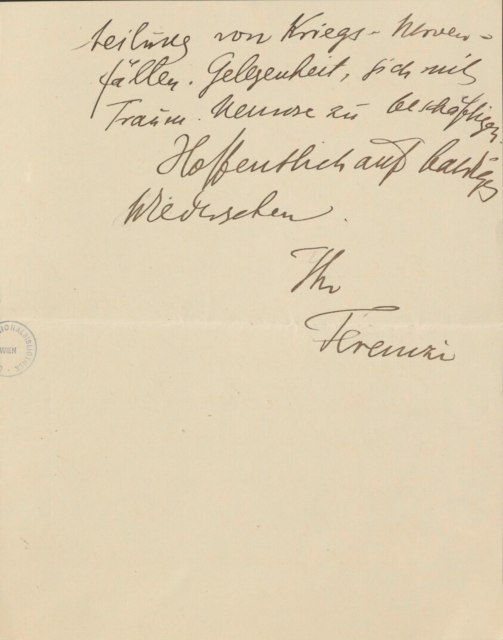 teilung von Kriegs-Nerven-
fällen. Gelegenheit, sich mit
Traum. Neurose zu beschäftigen.
Hoffentlich auf baldiges
Wiedersehen.
Ihr
Ferenczi
WIEN